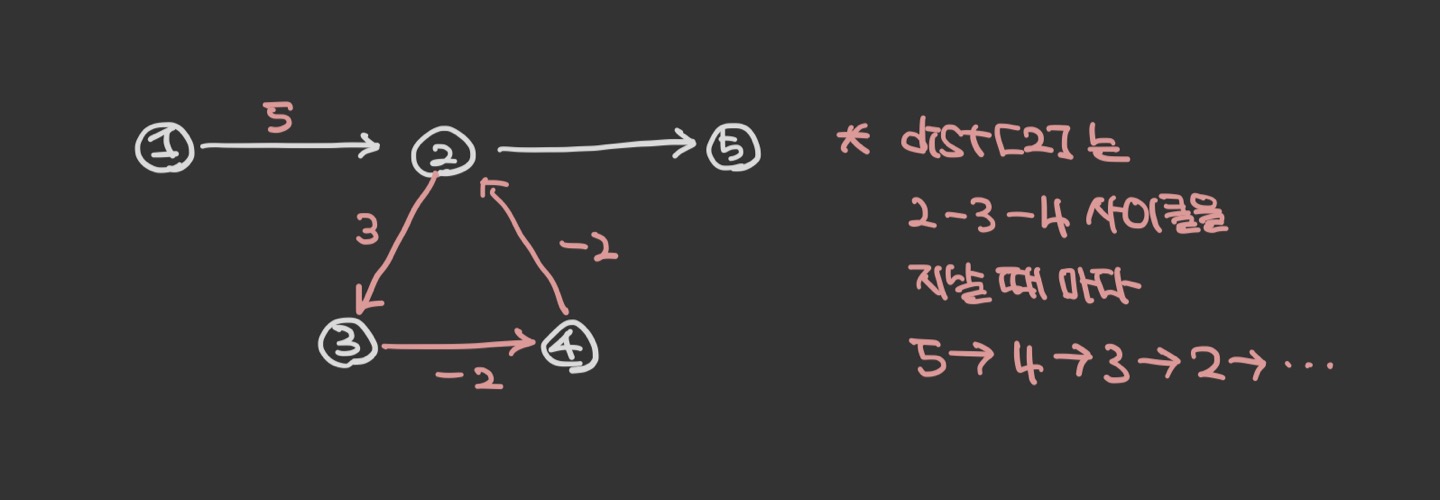 5
1
2
5
3
-2
3
4
-2
* dist[2]는
2-3-4 사이클을
지날 때 마다
5→4→3→2→···